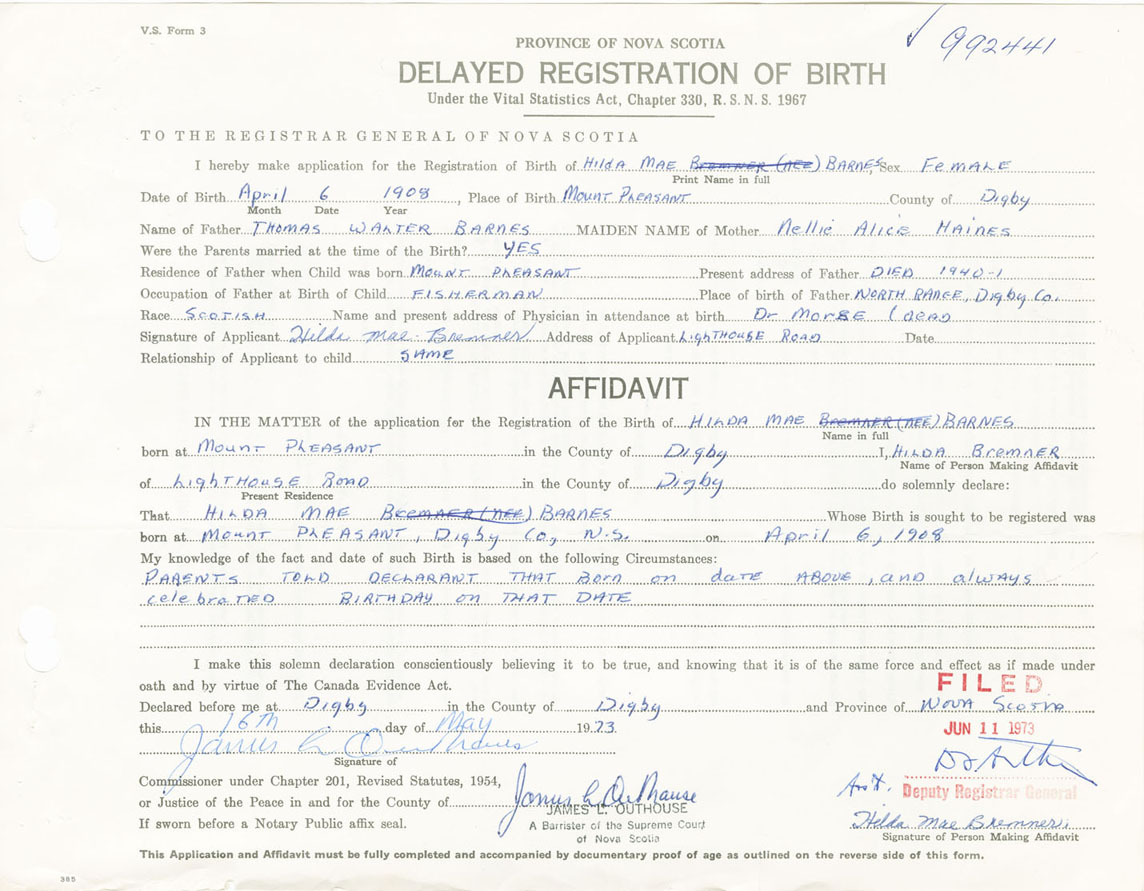 V.S. Form 3
992441
PROVINCE OF NOVA SCOTIA
DELAYED REGISTRATION OF BIRTH
Under the Vital Statistics Act, Chapter 330, R. S. N. S. 1967
TO THE REGISTRAR GENERAL OF NOVA SCOTIA
I hereby make application for the Registration of Birth of HILDA MAE BREMNER (NEE) BARNES, Sex FEMALE
Print Name in full
Date of Birth April 6 1908, Place of Birth MOUNT PLEASANT County of Digby
Month Date Year
Name of Father THOMAS WALTER BARNES MAIDEN NAME of Mother Nellie ALICE HAINES
Were the Parents married at the time of the Birth? YES
Residence of Father when Child was born MOUNT PLEASANT Present address of Father DIED 1940-1
Occupation of Father at Birth of Child FISHERMAN Place of birth of Father NORTH RANGE, Digby Co.
Race SCOTISH Name and present address of Physician in attendance at birth Dr MORSE (dead
Signature of Applicant Hilda Mae Bremner Address of Applicant LIGHTHOUSE ROAD Date
Relationship of Applicant to child SAME
AFFIDAVIT
IN THE MATTER of the application for the Registration of the Birth of HILDA MAE BREMNER (NEE) BARNES
Name in full
born at MOUNT PLEASANT in the County of Digby I, HILDA BREMNER
Name of Person Making Affidavit
of LIGHTHOUSE ROAD in the County of Digby do solemnly declare:
Present Residence
That HILDA MAE BREMNER (NEE) BARNES Whose Birth is sought to be registered was
born at MOUNT PLEASANT, Digby Co, N.S. on April 6, 1908
My knowledge of the fact and date of such Birth is based on the following Circumstances:
PARENTS TOLD DECLARANT THAT BORN ON date ABOVE, and always
celebrATED BIRTHDAY ON THAT DATE
I make this solemn declaration conscientiously believing it to be true, and knowing that it is of the same force and effect as if made under
oath and by virtue of The Canada Evidence Act.
FILED
Declared before me at Digby in the County of Digby and Province of NOVA SCOTIA
this 16TH day of May 1973.
JUN 11 1973
James L Outhouse
Signature of
Commissioner under Chapter 201, Revised Statutes, 1954,
or Justice of the Peace in and for the County of
James L Outhouse
JAMES L. OUTHOUSE
Ass't. Deputy Registrar General
If sworn before a Notary Public affix seal.
A Barrister of the Supreme Court
of Nova Scotia
Hilda Mae Bremner
Signature of Person Making Affidavit
This Application and Affidavit must be fully completed and accompanied by documentary proof of age as outlined on the reverse side of this form.
385